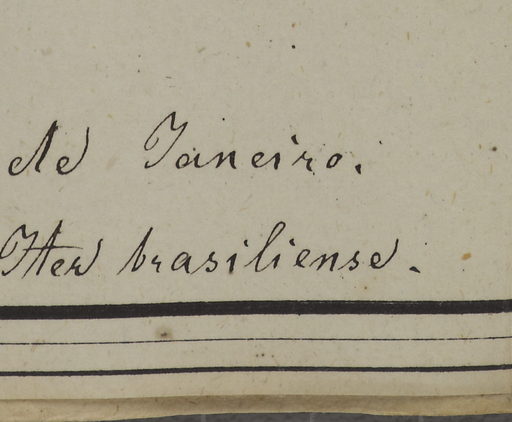 de Janeiro.
Iter brasiliense.